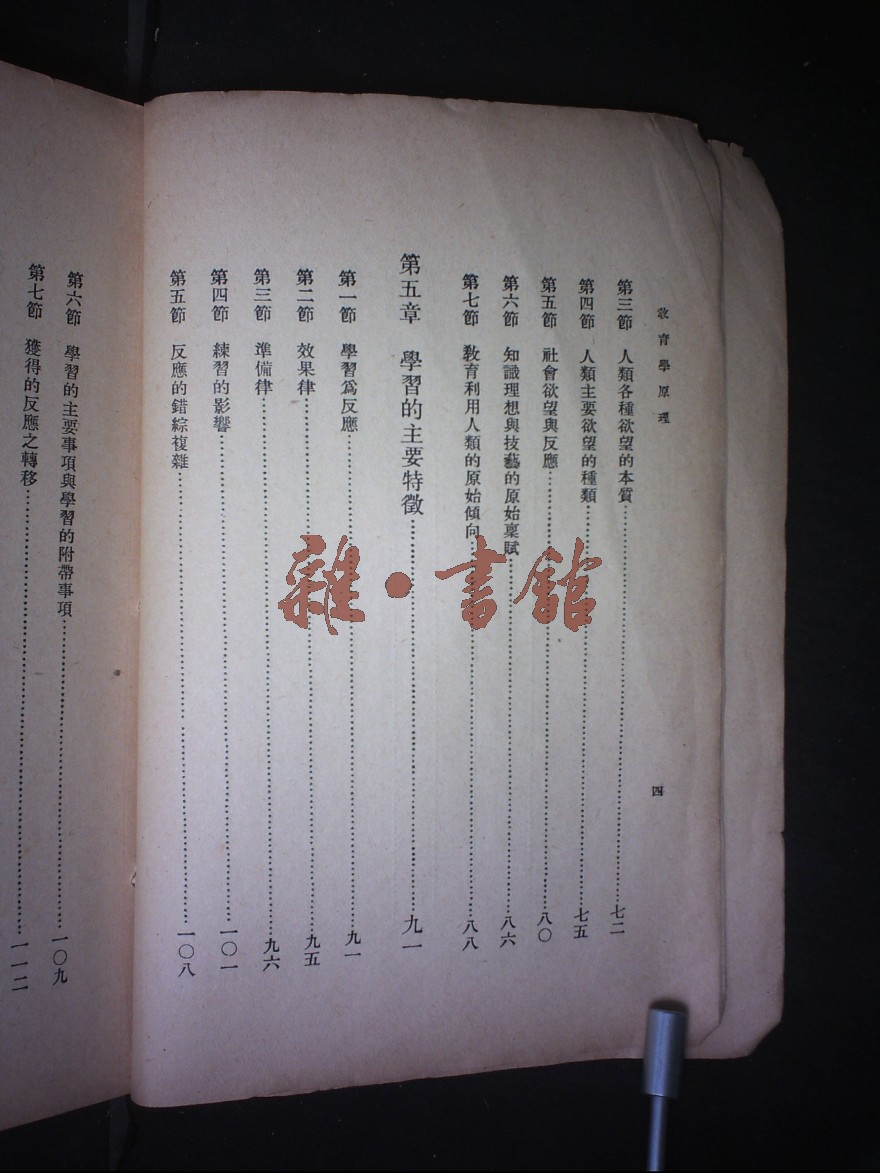 教育學原理
四
第三節 人類各種欲望的本質……七二
第四節 人類主要欲望的種類……七五
第五節 社會欲望與反應……八〇
第六節 知識理想與技藝的原始稟賦……八六
第七節 教育利用人類的原始傾向……八八
第五章 學習的主要特徵……九一
第一節 學習爲反應……九一
第二節 效果律……九五
第三節 準備律……九六
第四節 練習的影響……一〇一
第五節 反應的錯綜複雜……一〇八
第六節 學習的主要事項與學習的附帶事項……一〇九
第七節 獲得的反應之轉移……一一二
雜·書館